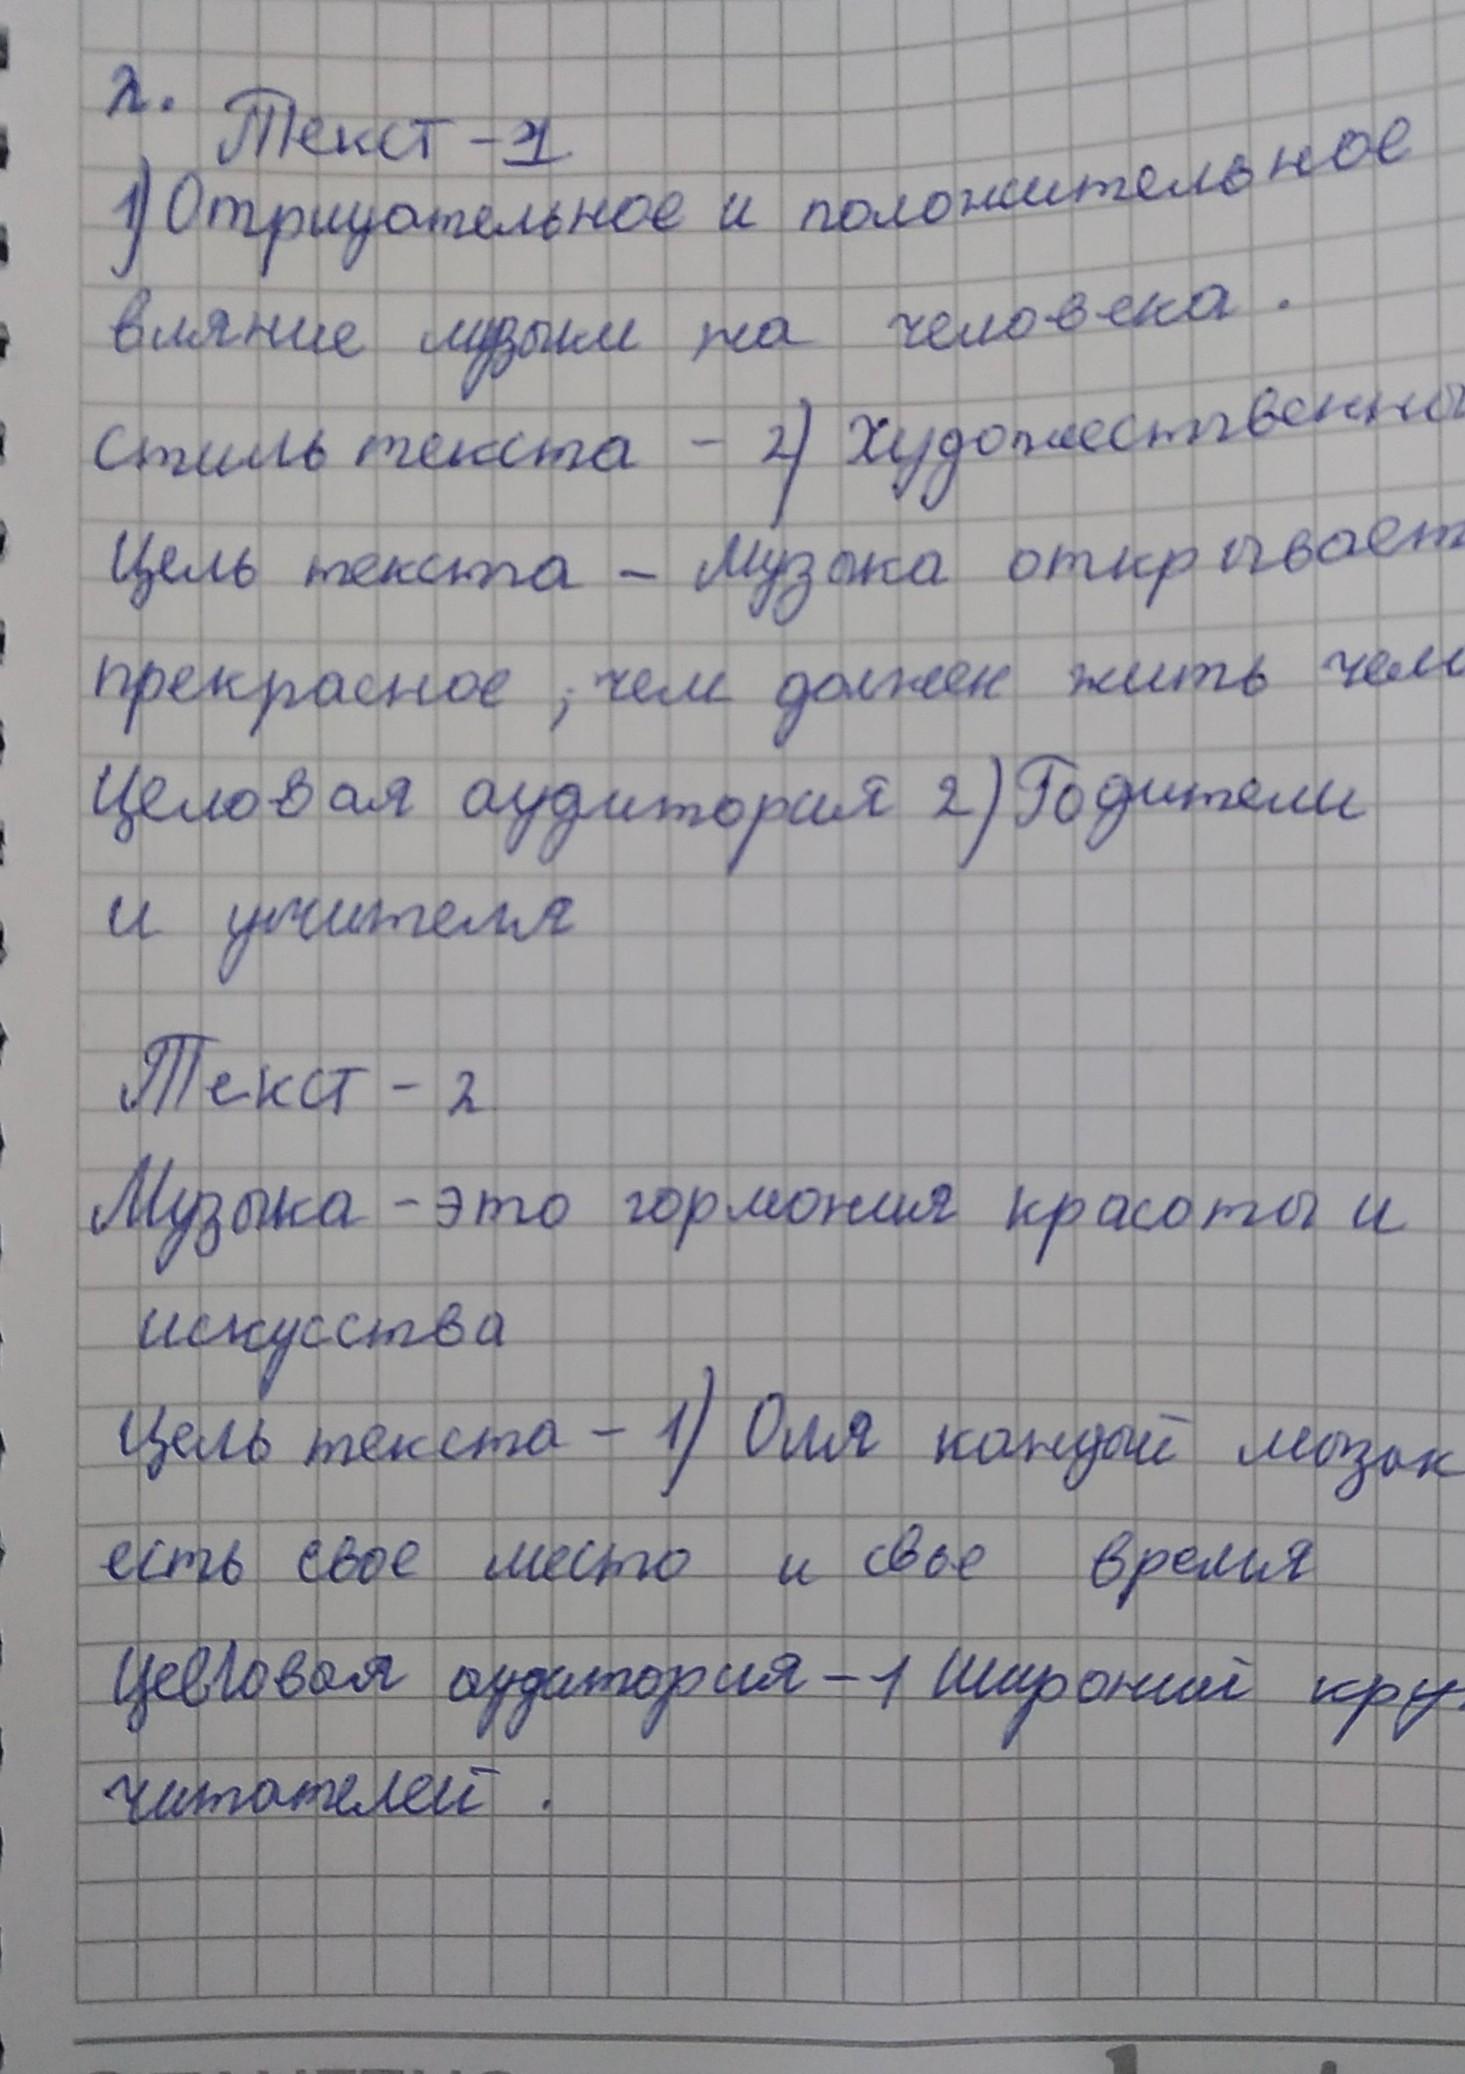 2.
Текст - 1
1) Отрицательное и положительное
вляние музыки на человека.
стиль текста - 2) Художественны
Цель текста - Музыка открывает
прекрасное, чем должен жить чело
Целовая аудитория 2) Родители
и учителя
Текст - 2
Музыка - это гормония красоты и
искусства
Цель текста - 1) Для каждый музык
есть свое место и свое время
Целовая аудитория - 1 Широкий круг
читателей.